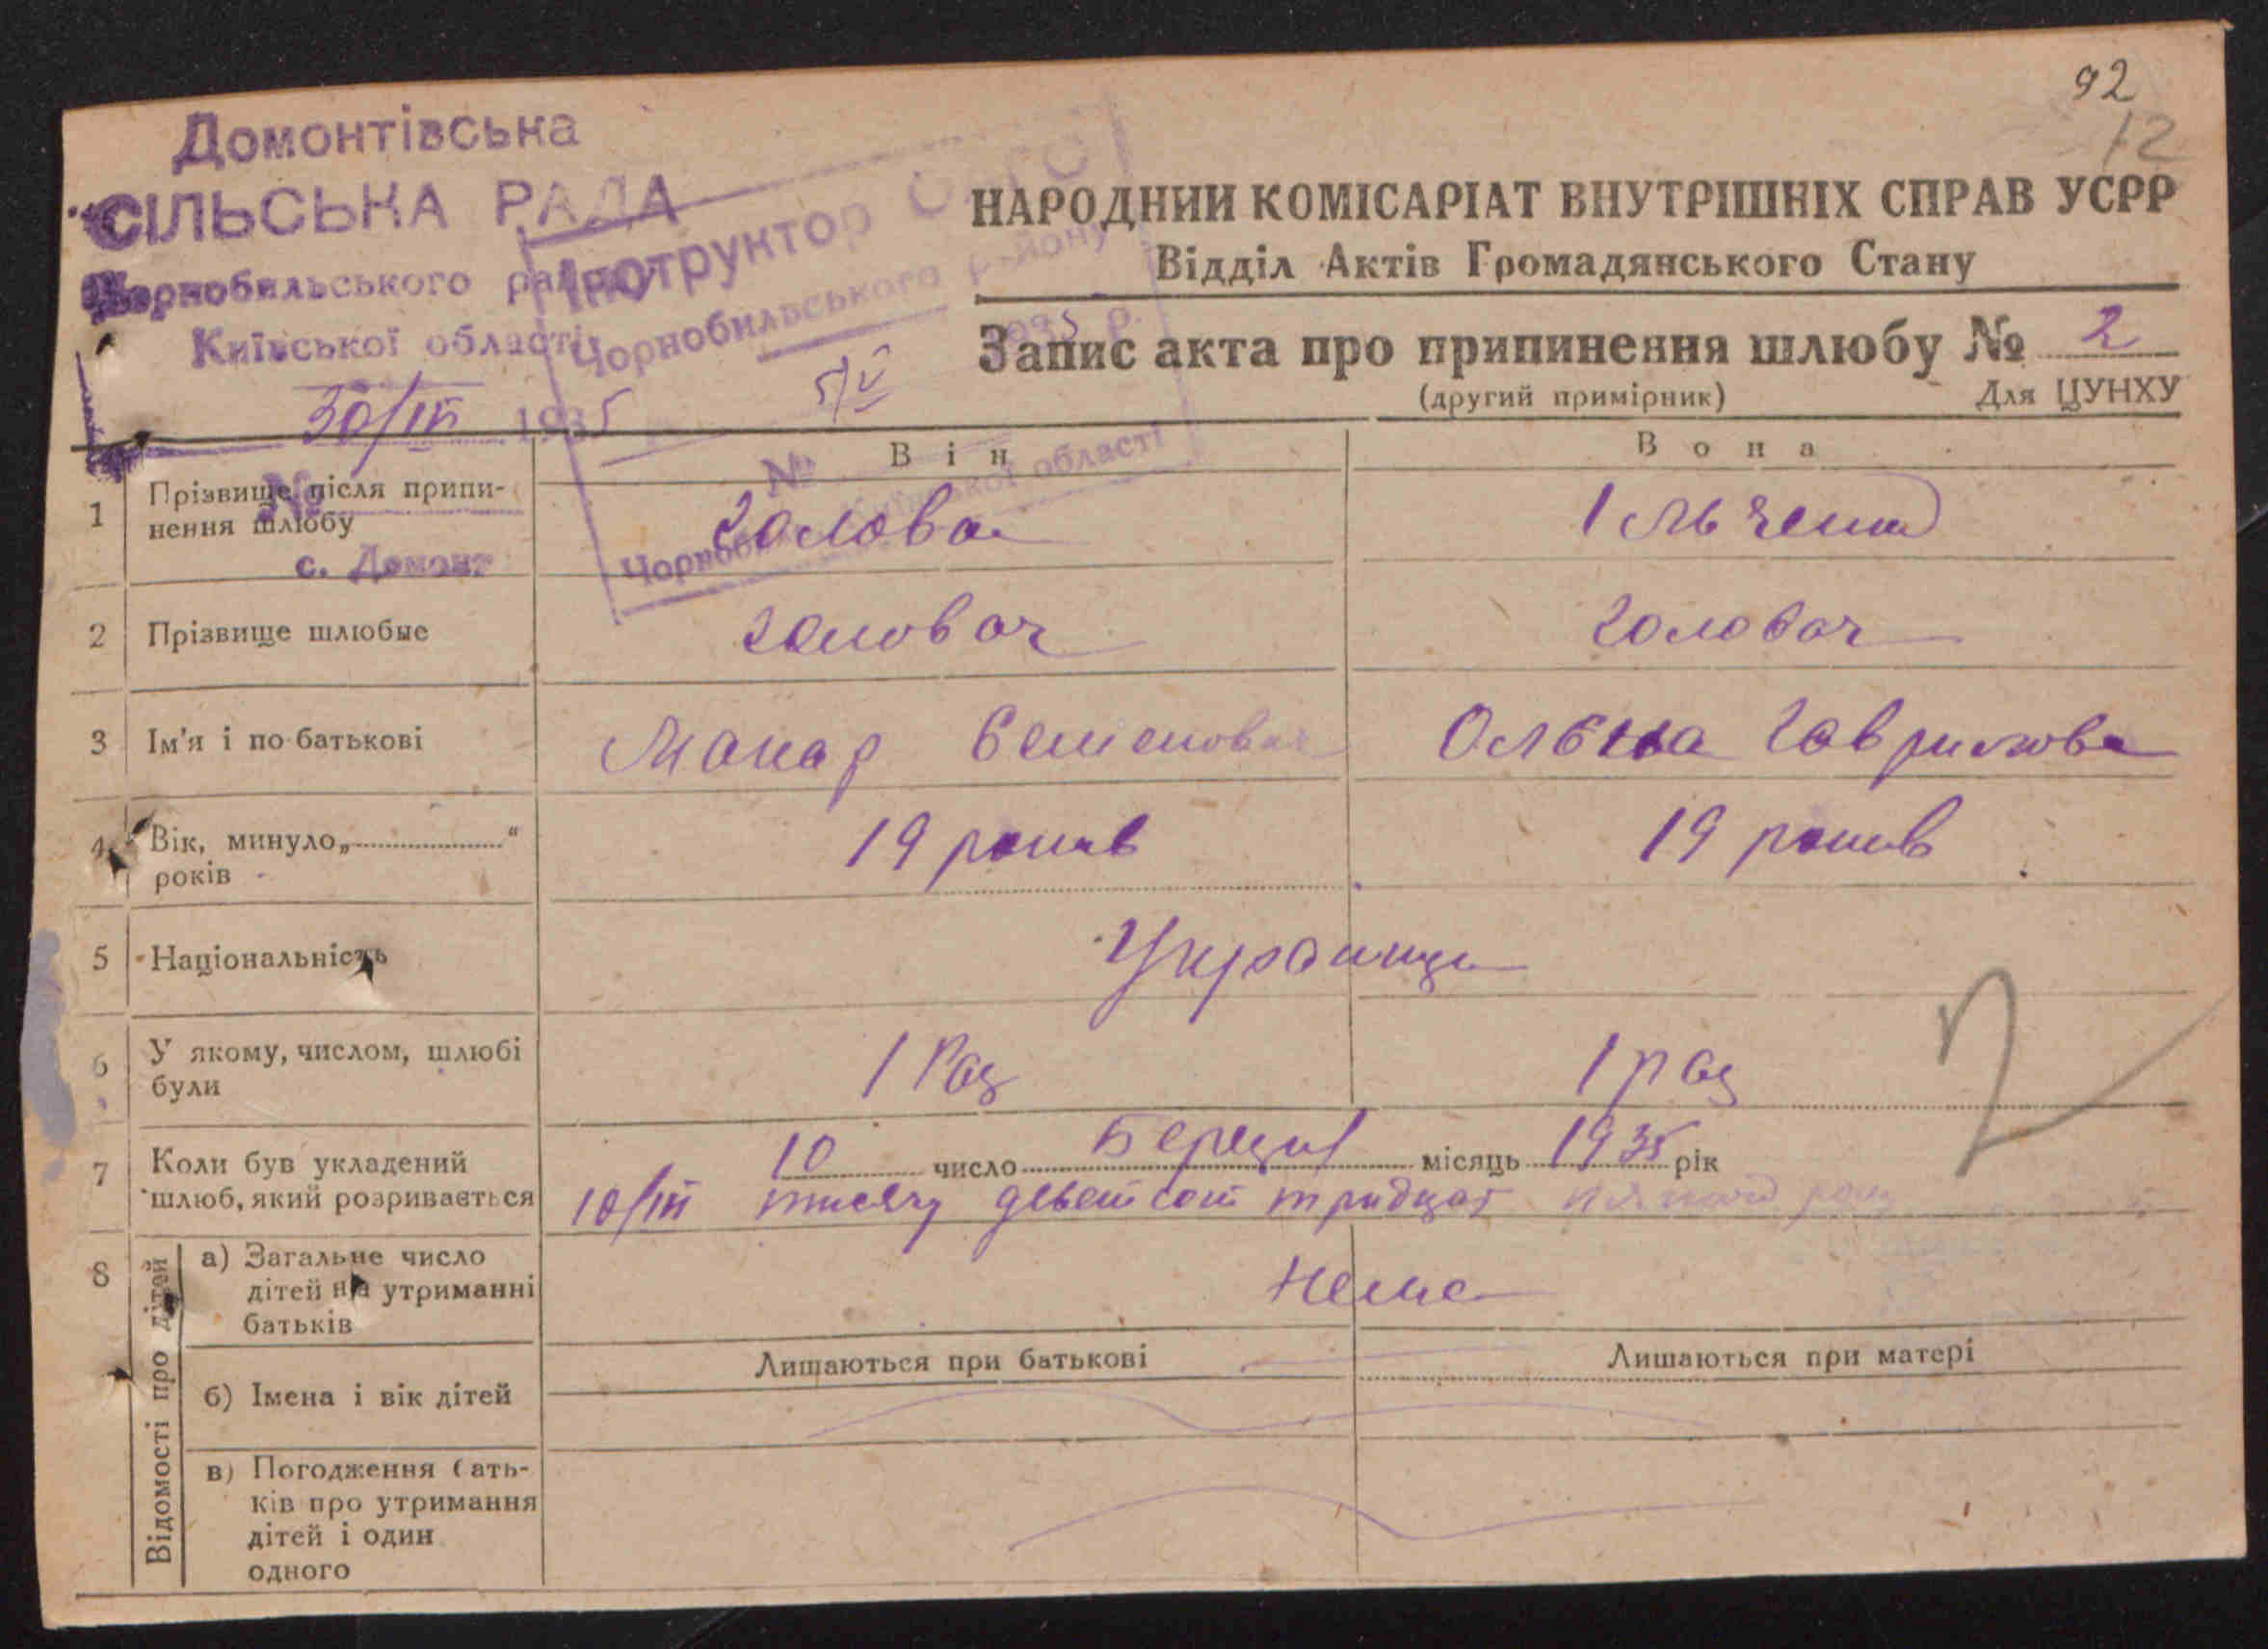 92
12
Домонтівська
СІЛЬСЬКА РАДА
Чорнобильського району
Київської області
30/III 1935
№
с. Домонт
Інструктор
Чорнобильського району
5/V 1935 р.
№
Чорноб Київської області
НАРОДНИЙ КОМІСАРІАТ ВНУТРІШНІХ СПРАВ УСРР
Відділ Актів Громадянського Стану
Запис акта про припинення шлюбу № 2
(другий примірник) Для ЦУНХУ
Він Вона
1 Прізвище після припи-
нення шлюбу Голова Ільченко
2 Прізвище шлюбне Головач Головач
3 Ім'я і по-батькові Макар Семенович Олєна Гаврилова
4 Вік, минуло „ “
років 19 роков 19 роков
5 Національність Украинци
6 У якому, числом, шлюбі
були 1 Раз 1 раз
7 Коли був укладений
шлюб, який розривається
10 число Березня місяць 1935 рік
10/III тисячу девятсот тридцат пятого року
8 Відомості про дітей
а) Загальне число
дітей на утриманні
батьків Неме
Лишаються при батькові Лишаються при матері
б) Імена і вік дітей
в) Погодження бать-
ків про утримання
дітей і один
одного
2